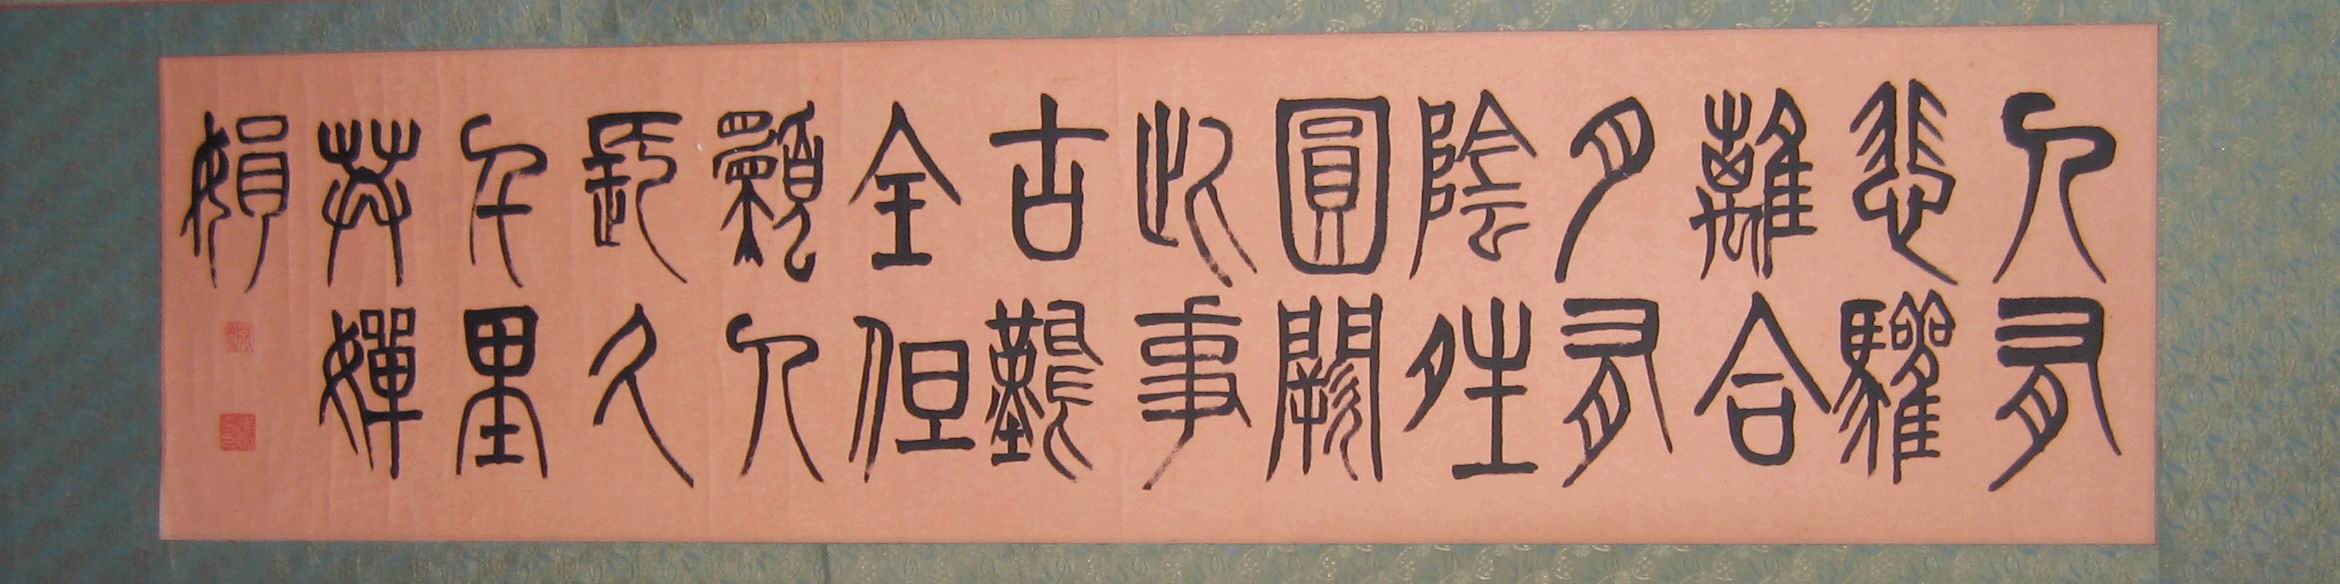 人有
悲驩
離合
月有
陰夝
圓闕
此事
古難
全但
願人
長久
千里
共嬋
娟